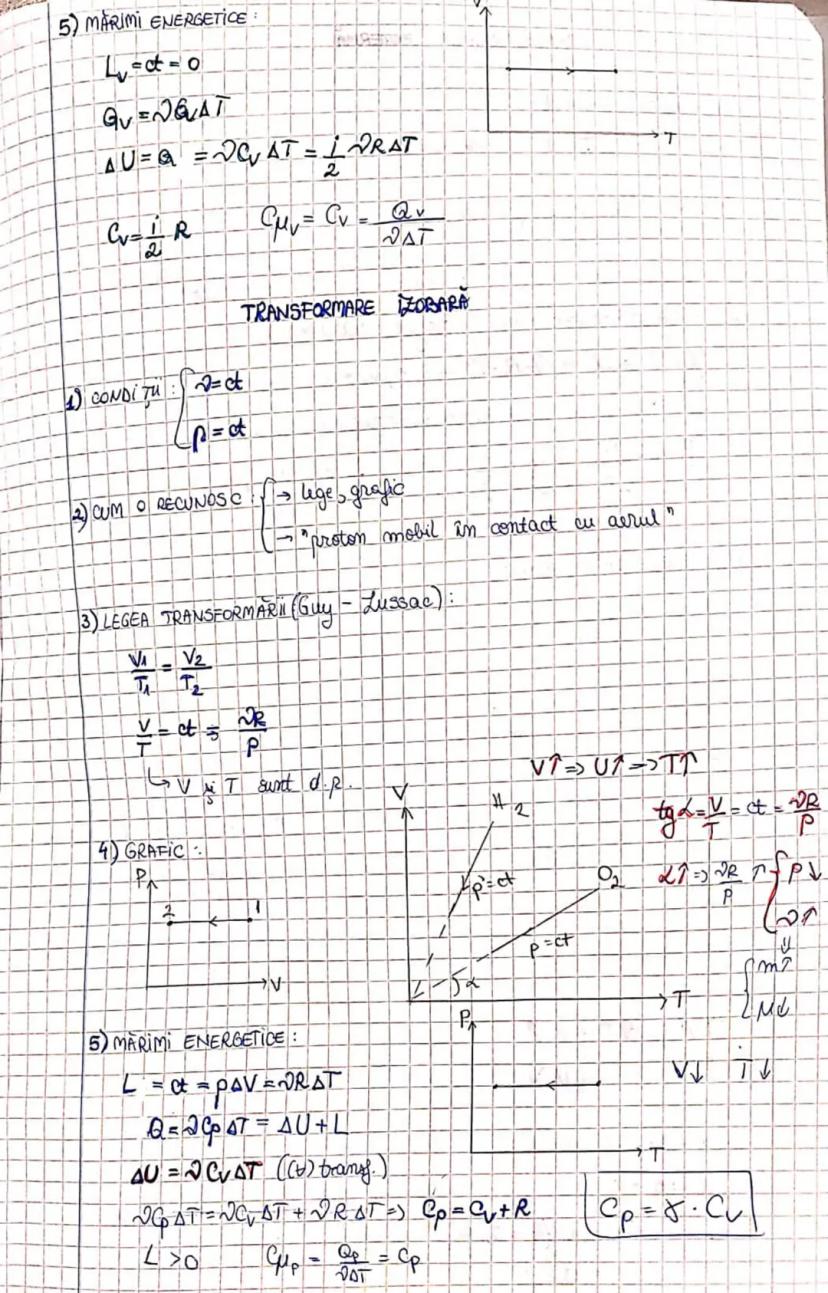 5) MĂRIMI ENERGETICE:
V
L_V = ct = 0
Q_V = νC_VΔT
T
ΔU = Q = νC_V ΔT = i/2 νRΔT
C_V = i/2 R
Cμ_V = C_V = Q_V/νΔT
TRANSFORMARE IZOBARĂ
1) CONDIȚII: { ν = ct
p = ct
2) CUM O RECUNOSC: { → lege, grafic
→ "proton mobil în contact cu aerul"
3) LEGEA TRANSFORMĂRII (Guy - Lussac):
V₁/T₁ = V₂/T₂
V/T = ct = νR/p
↳ V și T sunt d.p.
V↑ => U↑ => T↑
V
H₂
tg α = V/T = ct = νR/p
4) GRAFIC:
P
2 1
V
p = ct
O₂
p = ct
α
T
α↑ => νR/p ↑ { p↓
ν↑
⇓
{ m↑
μ↓
5) MĂRIMI ENERGETICE:
P
T
V↓ T↓
L = ct = pΔV = νRΔT
Q = νCpΔT = ΔU + L
ΔU = νC_VΔT ((∀) transf.)
νCpΔT = νC_VΔT + νRΔT => Cp = C_V + R
Cp = γ · C_V
L > 0
Cμ_p = Q_p/νΔT = Cp